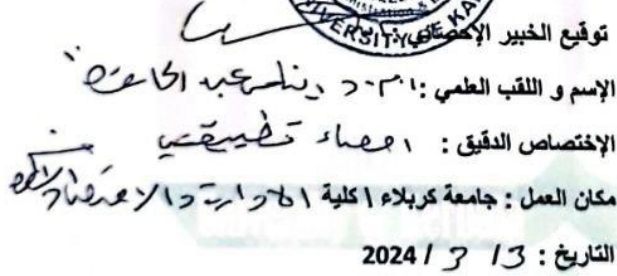 UNIVERSITY OF KA
توقيع الخبير الإحصائي:
الإسم و اللقب العلمي : ا.م.د عبد
الإختصاص الدقيق : احصاء تطبيقي
مكان العمل : جامعة كربلاء \ كلية الادارة و الاقتصاد
التاريخ : 13 / 3 / 2024